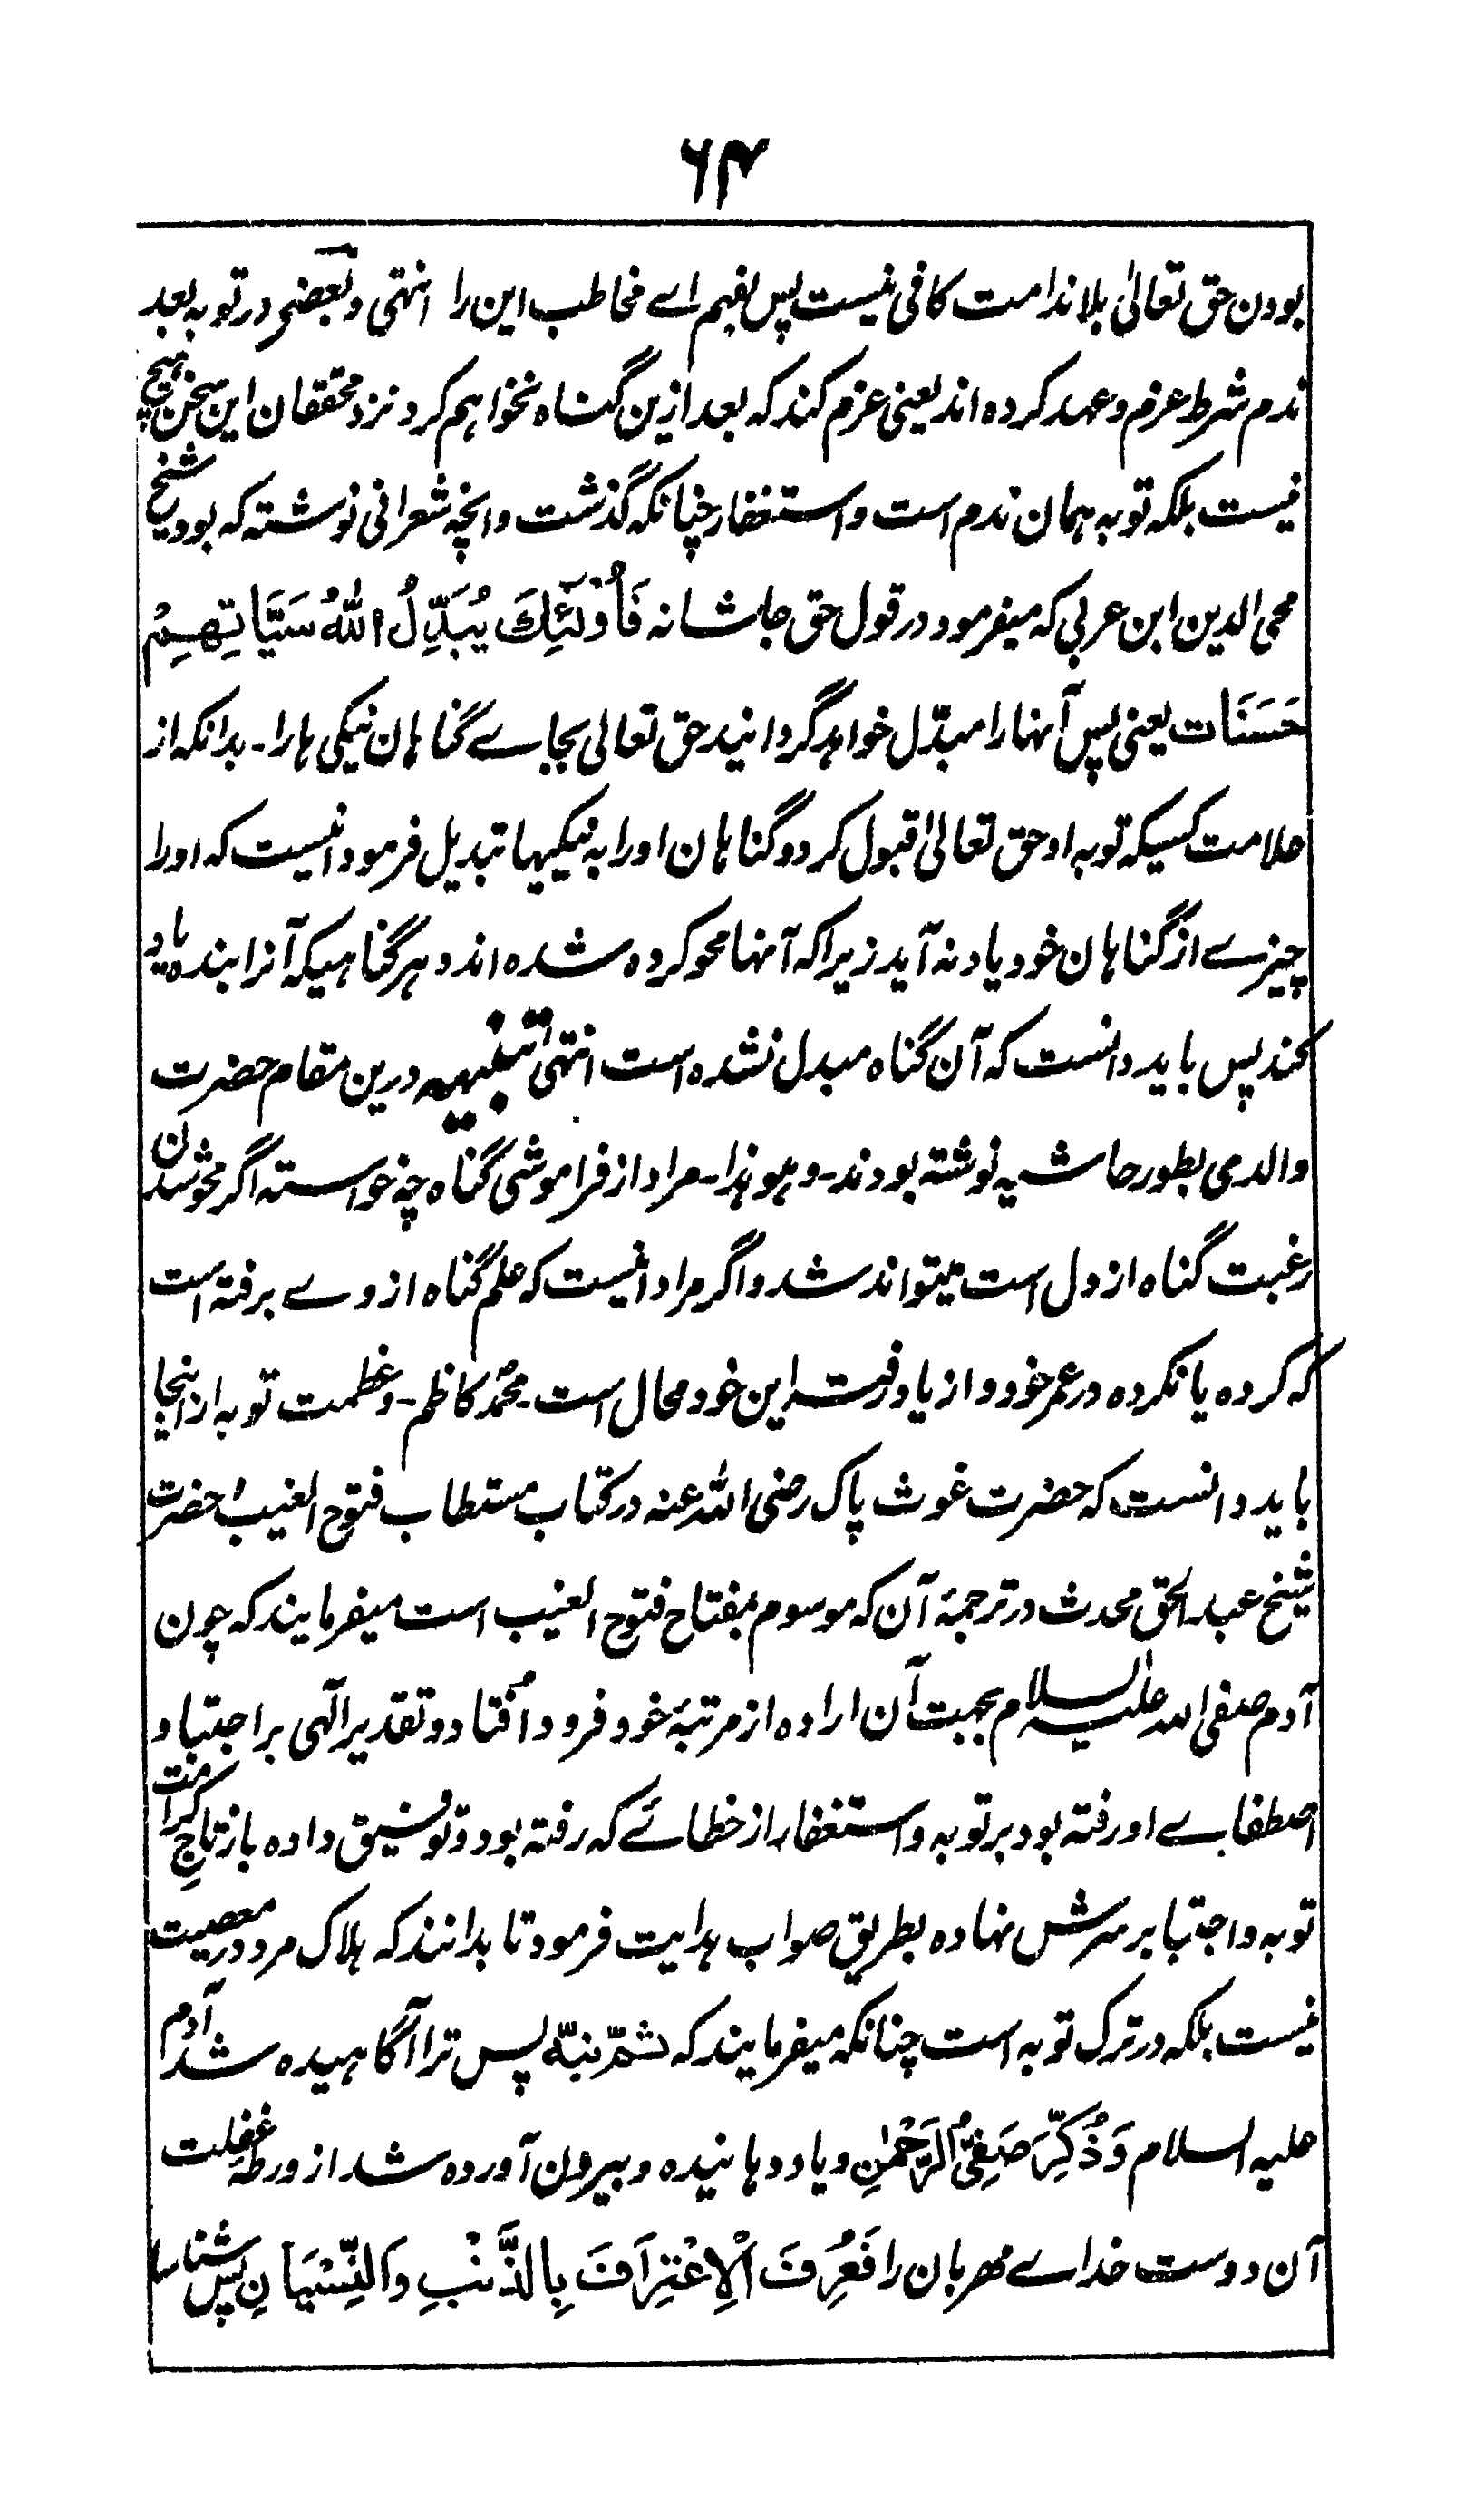 ۶۴
بودن حق تعالیٰ بلا ندامت کافی نیست پس بفهم اے مخاطب این را انتہی و بعضے در توبہ بعد
ندم شرط عزم و عہد کردہ اند یعنی عزم کند کہ بعد ازین گناہ نخواہم کرد نزد محققان این سخن ہیچ
نیست بلکہ توبہ ہمان ندم است و استغفار چنانکہ گذشت و انچہ شعرانی نوشتہ کہ بود شیخ
محی الدین ابن عربی کہ میفرمود در قول حق جلشانہ فَاُوْلٰٓئِكَ يُبَدِّلُ اللهُ سَيَّاتِهِمْ
حَسَنَات یعنی پس آنہا را مبدّل خواہد گردانید حق تعالی بجاے گناہان نیکی ہا را۔ بدانکہ از
علامت کسیکہ توبہ او حق تعالیٰ قبول کرد و گناہان او را بہ نیکیہا تبدیل فرمود انیست کہ او را
چیزے از گناہان خود یاد نہ آید زیرا کہ آنہا محو کردہ شدہ اند و ہر گناہیکہ آنرا بندہ یاد
کند پس باید دانست کہ آن گناہ مبدل نشدہ است انتہی تنبیہ درین مقام حضرت
والدمی بطور حاشیہ نوشتہ بودند۔ و ہو ہذا۔ مراد از فراموشی گناہ چہ خواستہ اگر محو شدن
رغبت گناہ از دل است میتواند شد و اگر مراد انیست کہ علم گناہ از وے برفتہ است
کہ کردہ یا نکردہ در عمر خود و از یاد رفت این خود محال است۔ محمد کاظم۔ و عظمت توبہ ازینجا
باید دانست کہ حضرت غوث پاک رضی اللہ عنہ در کتاب مستطاب فتوح الغیب و حضرت
شیخ عبدالحق محدث در ترجمۂ آن کہ موسوم بمفتاح فتوح الغیب است میفرمایند کہ چون
آدم صفی اللہ علیہ السلام بجہت آن ارادہ از مرتبۂ خود فرود اُفتاد و تقدیر الٰہی بر اجتبا و
اصطفاے او رفتہ بود بر توبہ و استغفار از خطائے کہ رفتہ بود و توفیق دادہ باز تاجِ کرامت
توبہ و اجتبا بر سرش نہادہ بطریق صواب ہدایت فرمود تا بدانند کہ ہلاک مرد در معصیت
نیست بلکہ در ترک توبہ است چنانکہ میفرمایند کہ ثمّ نبّہ پس ترا آگاہیدہ شد آدم
علیہ السلام وَذُكِّرَ صَفِيُّ الرَّحْمٰنِ و یاد دہانیدہ و بیرون آوردہ شد از ورطۂ غفلت
آن دوست خداے مہربان را فَعُرِفَ الْاِعْتِرَافَ بِالذَّنْبِ وَالنِّسْيَانِ پس شناسا